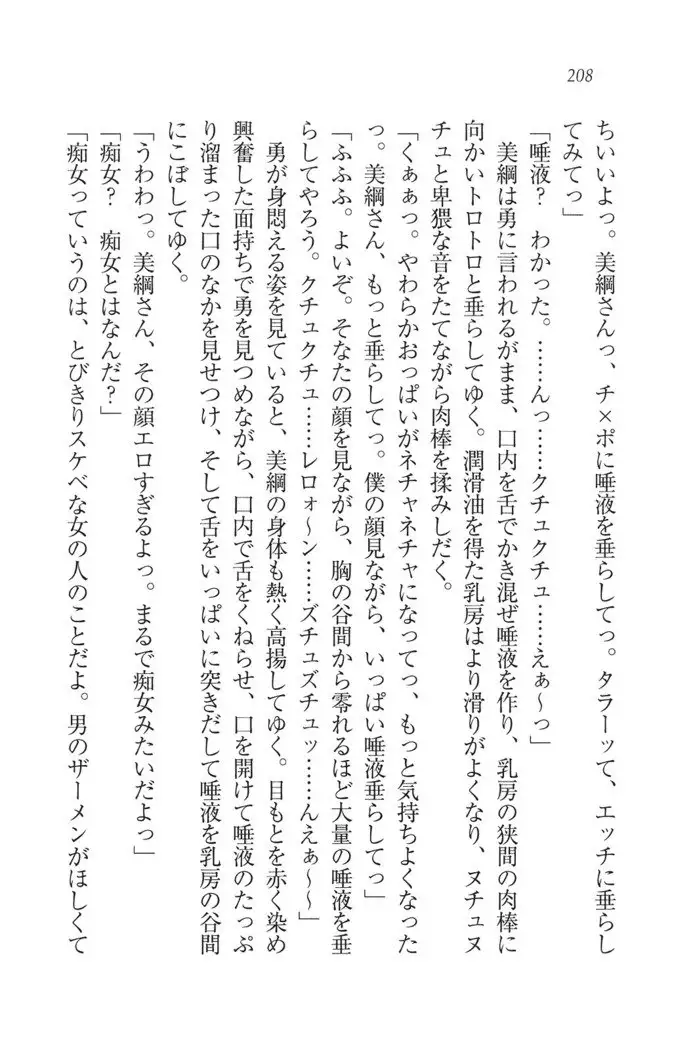 208
ちいいよっ。美綱さんっ、チ×ポに唾液を垂らしてっ。タラーッて、エッチに垂らし
てみてっ」
「唾液？　わかった。……んっ……クチュクチュ……えぁ～っ」
　美綱は勇に言われるがまま、口内を舌でかき混ぜ唾液を作り、乳房の狭間の肉棒に
向かいトロトロと垂らしてゆく。潤滑油を得た乳房はより滑りがよくなり、ヌチュヌ
チュと卑猥な音をたてながら肉棒を揉みしだく。
「くぁぁっ。やわらかおっぱいがネチャネチャになってっ、もっと気持ちよくなった
っ。美綱さん、もっと垂らしてっ。僕の顔見ながら、いっぱい唾液垂らしてっ」
「ふふふ。よいぞ。そなたの顔を見ながら、胸の谷間から零れるほど大量の唾液を垂
らしてやろう。クチュクチュ……レロォ～ン……ズチュズチュッ……んえぁ～～」
　勇が身悶える姿を見ていると、美綱の身体も熱く高揚してゆく。目もとを赤く染め
興奮した面持ちで勇を見つめながら、口内で舌をくねらせ、口を開けて唾液のたっぷ
り溜まった口のなかを見せつけ、そして舌をいっぱいに突きだして唾液を乳房の谷間
にこぼしてゆく。
「うわわっ。美綱さん、その顔エロすぎるよっ。まるで痴女みたいだよっ」
「痴女？　痴女とはなんだ？」
「痴女っていうのは、とびきりスケベな女の人のことだよ。男のザーメンがほしくて